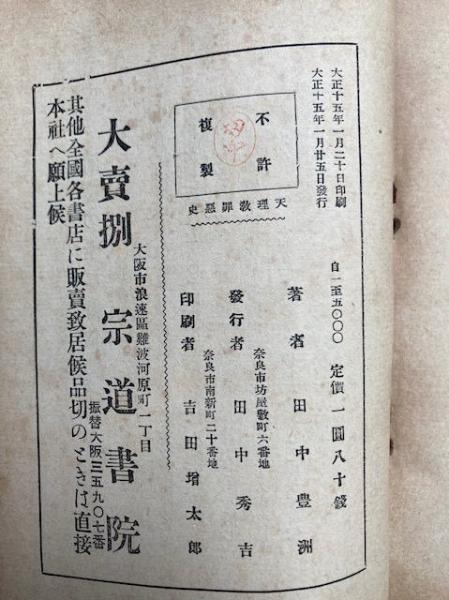 大正十五年一月二十日印刷
大正十五年一月廿五日發行
自一至五〇〇〇
定價一圓八十錢
不許
複製
天理教罪惡史
著者 田中豊洲
奈良市坊屋敷町六番地
發行者 田中秀吉
奈良市南新町二十番地
印刷者 吉田增太郎
大阪市浪速區難波河原町一丁目
大賣捌 宗道書院
振替大阪三五九〇七番
其他全國各書店に販賣致居候品切のときは直接
本社へ願上候